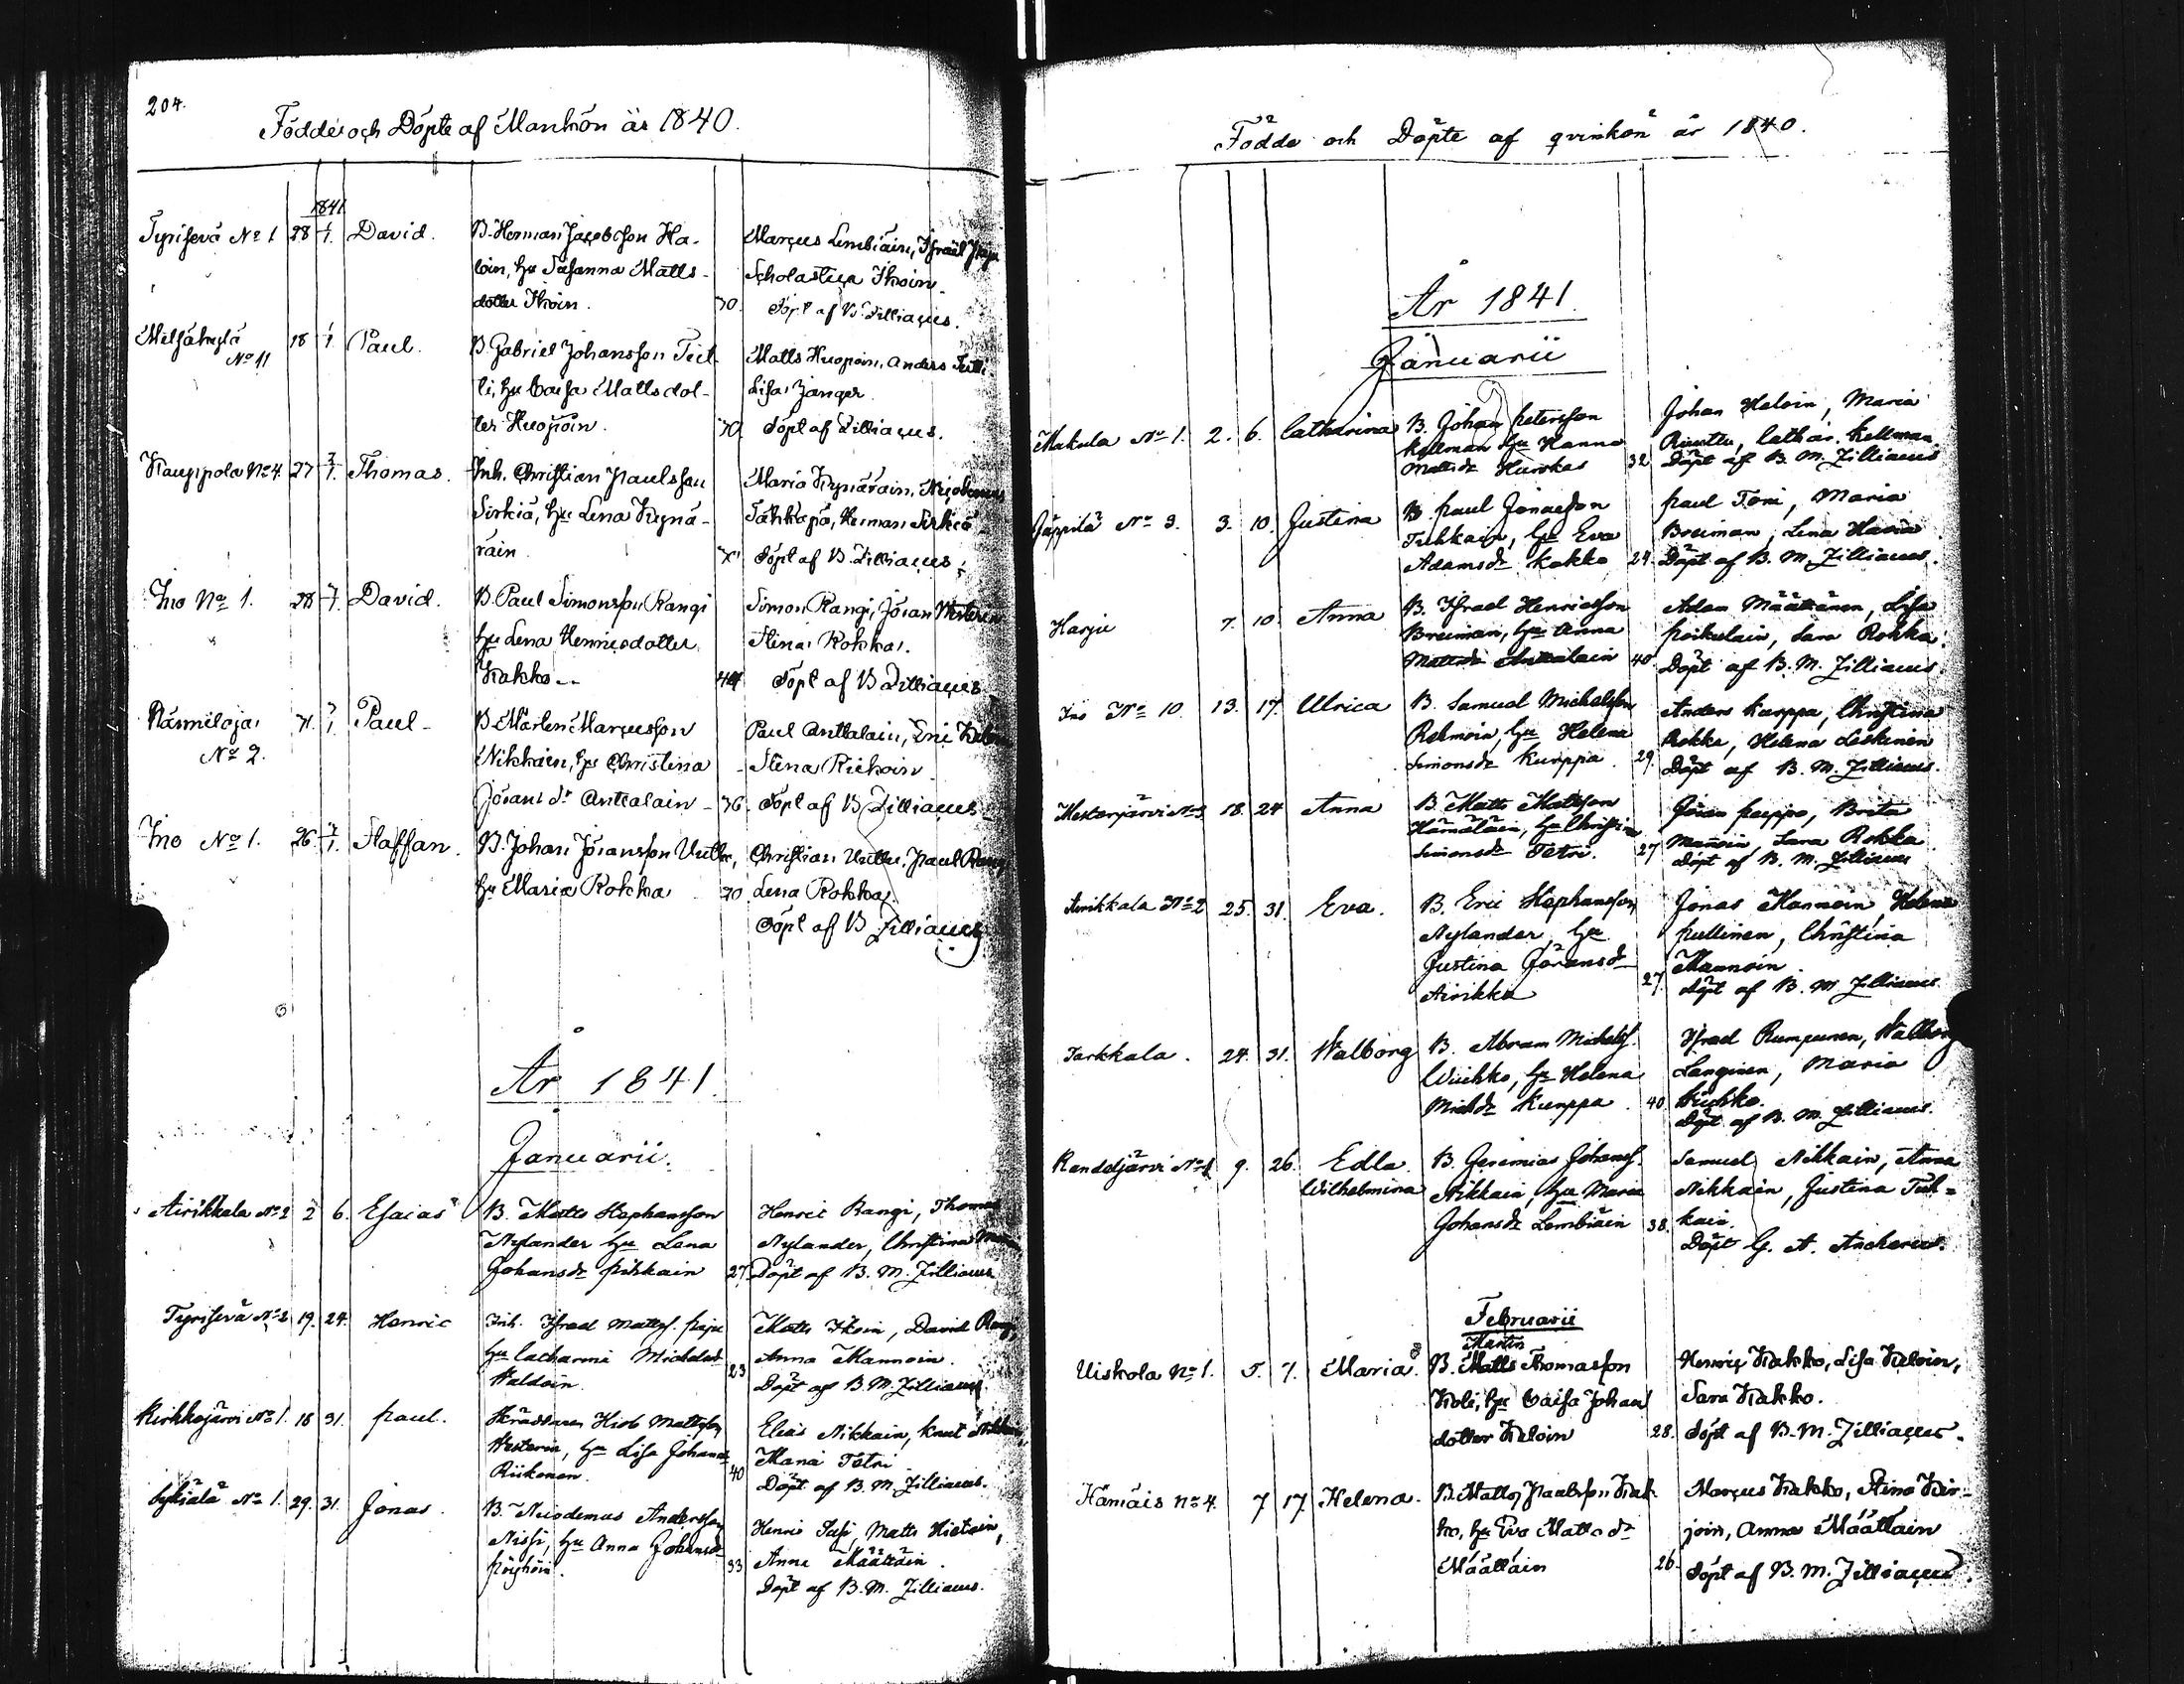 204.
Födde och Döpte af Mankön år 1840.
1841
Tyrisevä No 1 28 1. David. B. Herman Jacobsson Ha-
loin, hu Susanna Matts-
dotter Ihoin. 30.
Marcus Lembiäin, Israel
Scholastica Ihoin
Döpt af B. Zilliacus.
Metsäkylä No 11 18 1 Paul. B. Gabriel Johansson Teit
ti, hu Caisa Matsdot-
ter Huopoin.
Matts Huopoin, Anders
Lisa Zanger
Döpt af Zilliacus.
Kauppola No 4 27 Thomas. Inh. Christian Paulsson
Sirkiä, hu Lena Kynä-
räin
Maria Kynäräin, Nicodemus
Tähkäpä, Herman Sirkiä
Döpt af B. Zilliacus.
Ino No 1. 28 David. B. Paul Simonsson Rangi
hu Lena Henricsdotter
Kakko 44
Simon Rangi, Jöran
Stina Rokka.
Döpt af B Zilliacus
No 2. Paul B. Mårten Marcusson
Nikkain, hu Christina
Jörans dr Anttalain 36.
Paul Anttalain, Eric
Stina Riekoin
Döpt af B Zilliacus
Ino No 1. 26. Staffan. B. Johan Jöransson Uuttu,
hu Maria Rokka 30
Christian Uuttu, Paul
Lena Rokka.
Döpt af B Zilliacus
År 1841.
Januarii.
Airikkala No 2 2 6. Esaias B. Matts Stephansson
Nylander hu Lena
Johansdr Pihkain 27
Henric Rangi, Thomas
Nylander, Christina
Döpt af B. M. Zilliacus
Tyrisevä No 2 19. 24. Henric Inh. Israel Mattss. Paju
hu Catharina Michelsd
Valdoin 23
Matts Ihoin, David
Anna Mannoin.
Döpt af B. M. Zilliacus.
Kirkkojärvi No 1. 18 31. Paul. Skräddaren Hiob Mattsson
Westerin, hu Lisa Johansd
Riikonen. 40
Elias Nikkain, Knut
Maria Tetri
Döpt af B. M. Zilliacus.
No 1. 29. 31. Jonas. B. Nicodemus Andersson
Nissi, hu Anna Johansd
Pöyhöin. 33
Henric Susi, Matts Hietain,
Anna Määttäin.
Döpt af B. M. Zilliacus.
Födde och Döpte af qvinkön år 1840.
År 1841.
Januarii
Makula No 1. 2. 6. Catharina B. Johan Petersson
Kellman hu Hanna
Mattsdr Hurskas 32
Johan Haloin, Maria
Ruuttu, Cathar. Kellman.
Döpt af B. M. Zilliacus
Jäppilä No 3. 3. 10. Justina B. Paul Jonasson
Tuhkain, hu Eva
Adamsdr Kakko 24.
Paul Toni, Maria
Breiman, Lena Hania
Döpt af B. M. Zilliacus.
Harju 7. 10 Anna B. Israel Henricsson
Breiman, hu Anna
Mattsdr Anttalain 40.
Adam Määttänen, Lisa
Poikolain, Sara Rokka.
Döpt af B. M. Zilliacus.
Ino No 10 13. 17. Ulrica B. Samuel Michelsson
Relmoin, hu Helena
Simonsdr Kurppa. 29.
Anders Kurppa, Christina
Rokka, Helena Leskinen
Döpt af B. M. Zilliacus.
Mesterjärvi No 3 18. 24 Anna B. Matts Mattsson
Hämäläin, hu Christina
Simonsdr Tetri. 27
Jöran Peippo, Brita
Mannoin, Sara Rokka
Döpt af B. M. Zilliacus
Airikkala No 2 25. 31. Eva. B. Eric Stephansson
Nylander, hu
Justina Göransdr
Airikka 27.
Jonas Mannoin, Helena
Pullinen, Christina
Mannoin
Döpt af B. M. Zilliacus.
Jarkkala. 24. 31. Walborg B. Abram Michelss.
Wuohko, hu Helena
Michdr Kurppa. 40
Israel Rumpunen, Walborg
Langinen, Maria
Döpt af B. M. Zilliacus.
No 1 9. 26. Edla B. Jeremias Johanss.
Wilhelmina Nikkain, hu Maria
Johansdr Lembiäin 38.
Samuel Nikkain, Anna
Nikkain, Justina Tuh=
kain.
Döpt G. A. Ancherus.
Februarii
Martin
Uiskola No 1. 5. 7. Maria. B. Matts Thomasson
Koli, hu Caisa Johans
dotter Keloin 28.
Henric Kakko, Lisa Keloin,
Sara Kakko.
Döpt af B. M. Zilliacus.
Hämäis No 4. 7 17 Helena. B. Matts Paulsson Kak-
ko, hu Eva Mattsdr
Määttäin 26.
Marcus Kakko, Stina Kir-
join, Anna Määttäin
Döpt af B. M. Zilliacus.